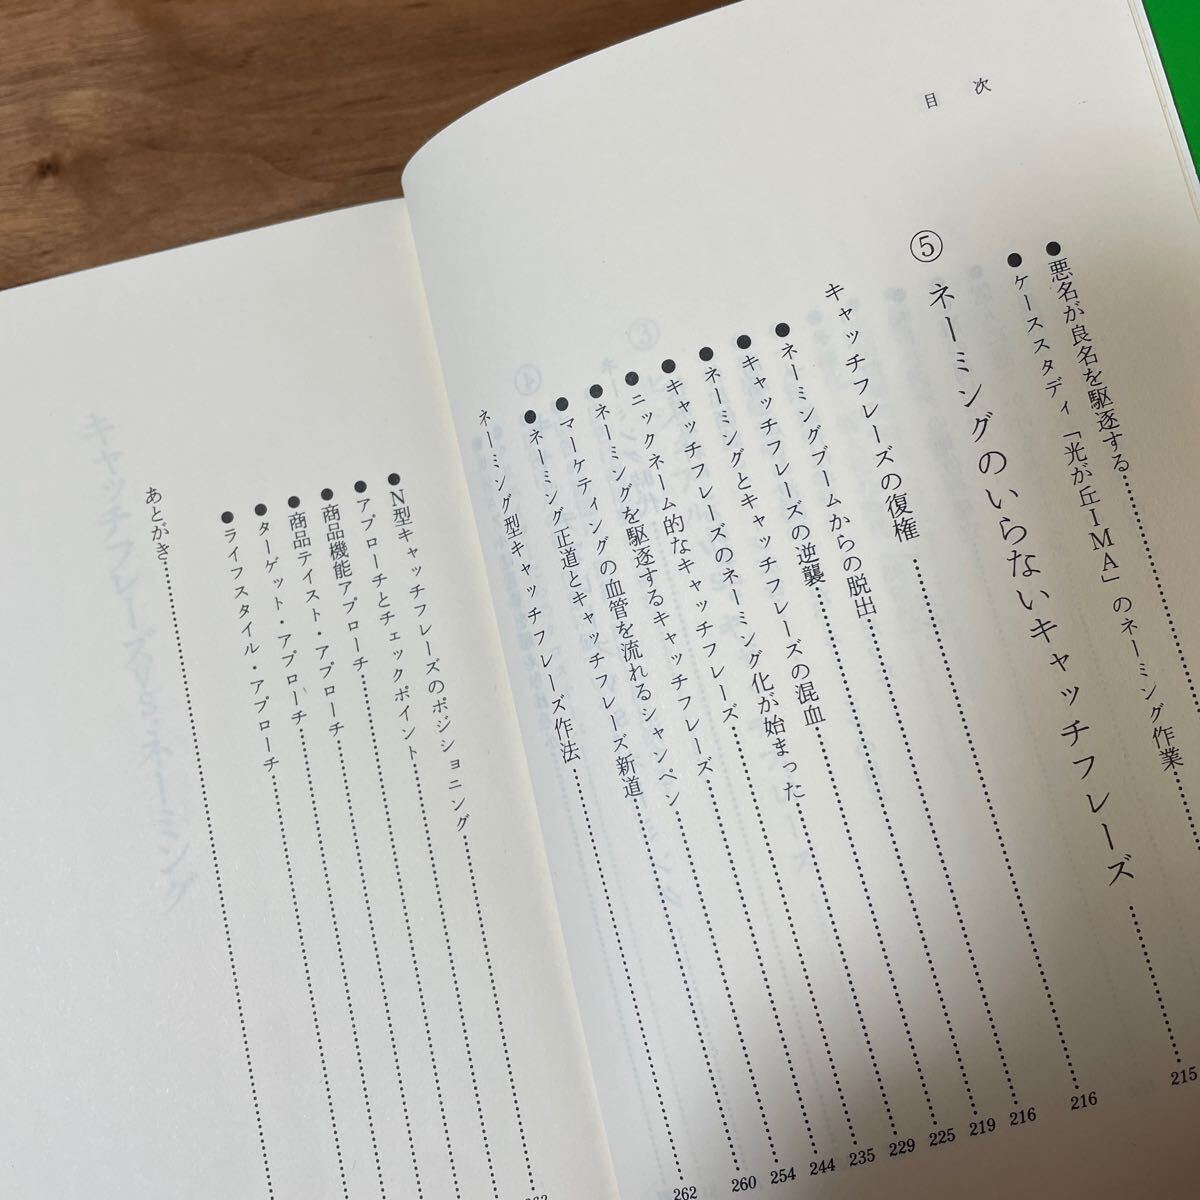 目次
●悪名が良名を駆逐する
●ケーススタディ「光が丘IMA」のネーミング作業
⑤ ネーミングのいらないキャッチフレーズ……215
キャッチフレーズの復権……216
●ネーミングブームからの脱出……216
●キャッチフレーズの逆襲……219
●ネーミングとキャッチフレーズの混血……225
●キャッチフレーズのネーミング化が始まった……229
●ニックネーム的なキャッチフレーズ……235
●ネーミングを駆逐するキャッチフレーズ……244
●マーケティングの血管を流れるシャンペン……254
●ネーミング正道とキャッチフレーズ新道……260
ネーミング型キャッチフレーズ作法……262
●N型キャッチフレーズのポジショニング
●アプローチとチェックポイント
●商品機能アプローチ
●商品テイスト・アプローチ
●ターゲット・アプローチ
●ライフスタイル・アプローチ
あとがき
キャッチフレーズVS.ネーミング